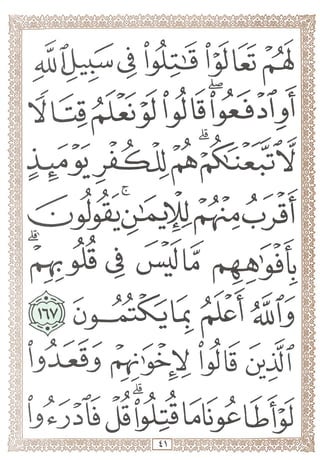 لَهُمۡ تَعَالَوۡاْ قَٰتِلُواْ فِي سَبِيلِ ٱللَّهِ
أَوِ ٱدۡفَعُواْۖ قَالُواْ لَوۡ نَعۡلَمُ قِتَالٗا
لَّٱتَّبَعۡنَٰكُمۡۗ هُمۡ لِلۡكُفۡرِ يَوۡمَئِذٍ
أَقۡرَبُ مِنۡهُمۡ لِلۡإِيمَٰنِۚ يَقُولُونَ
بِأَفۡوَٰهِهِم مَّا لَيۡسَ فِي قُلُوبِهِمۡۚ
وَٱللَّهُ أَعۡلَمُ بِمَا يَكۡتُمُونَ ١٦٧
ٱلَّذِينَ قَالُواْ لِإِخۡوَٰنِهِمۡ وَقَعَدُواْ
لَوۡ أَطَاعُونَا مَا قُتِلُواْۗ قُلۡ فَٱدۡرَءُواْ
٤١